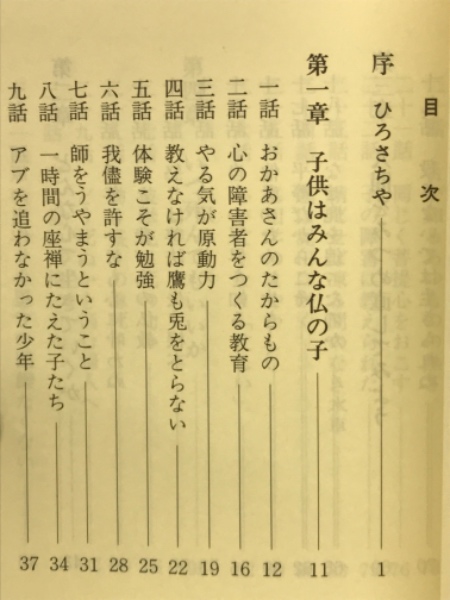 目次
序 ひろさちや 1
第一章 子供はみんな仏の子 11
一話 おかあさんのたからもの 12
二話 心の障害者をつくる教育 16
三話 やる気が原動力 19
四話 教えなければ鷹も兎をとらない 22
五話 体験こそが勉強 25
六話 我儘を許すな 28
七話 師をうやまうということ 31
八話 一時間の座禅にたえた子たち 34
九話 アブを追わなかった少年 37